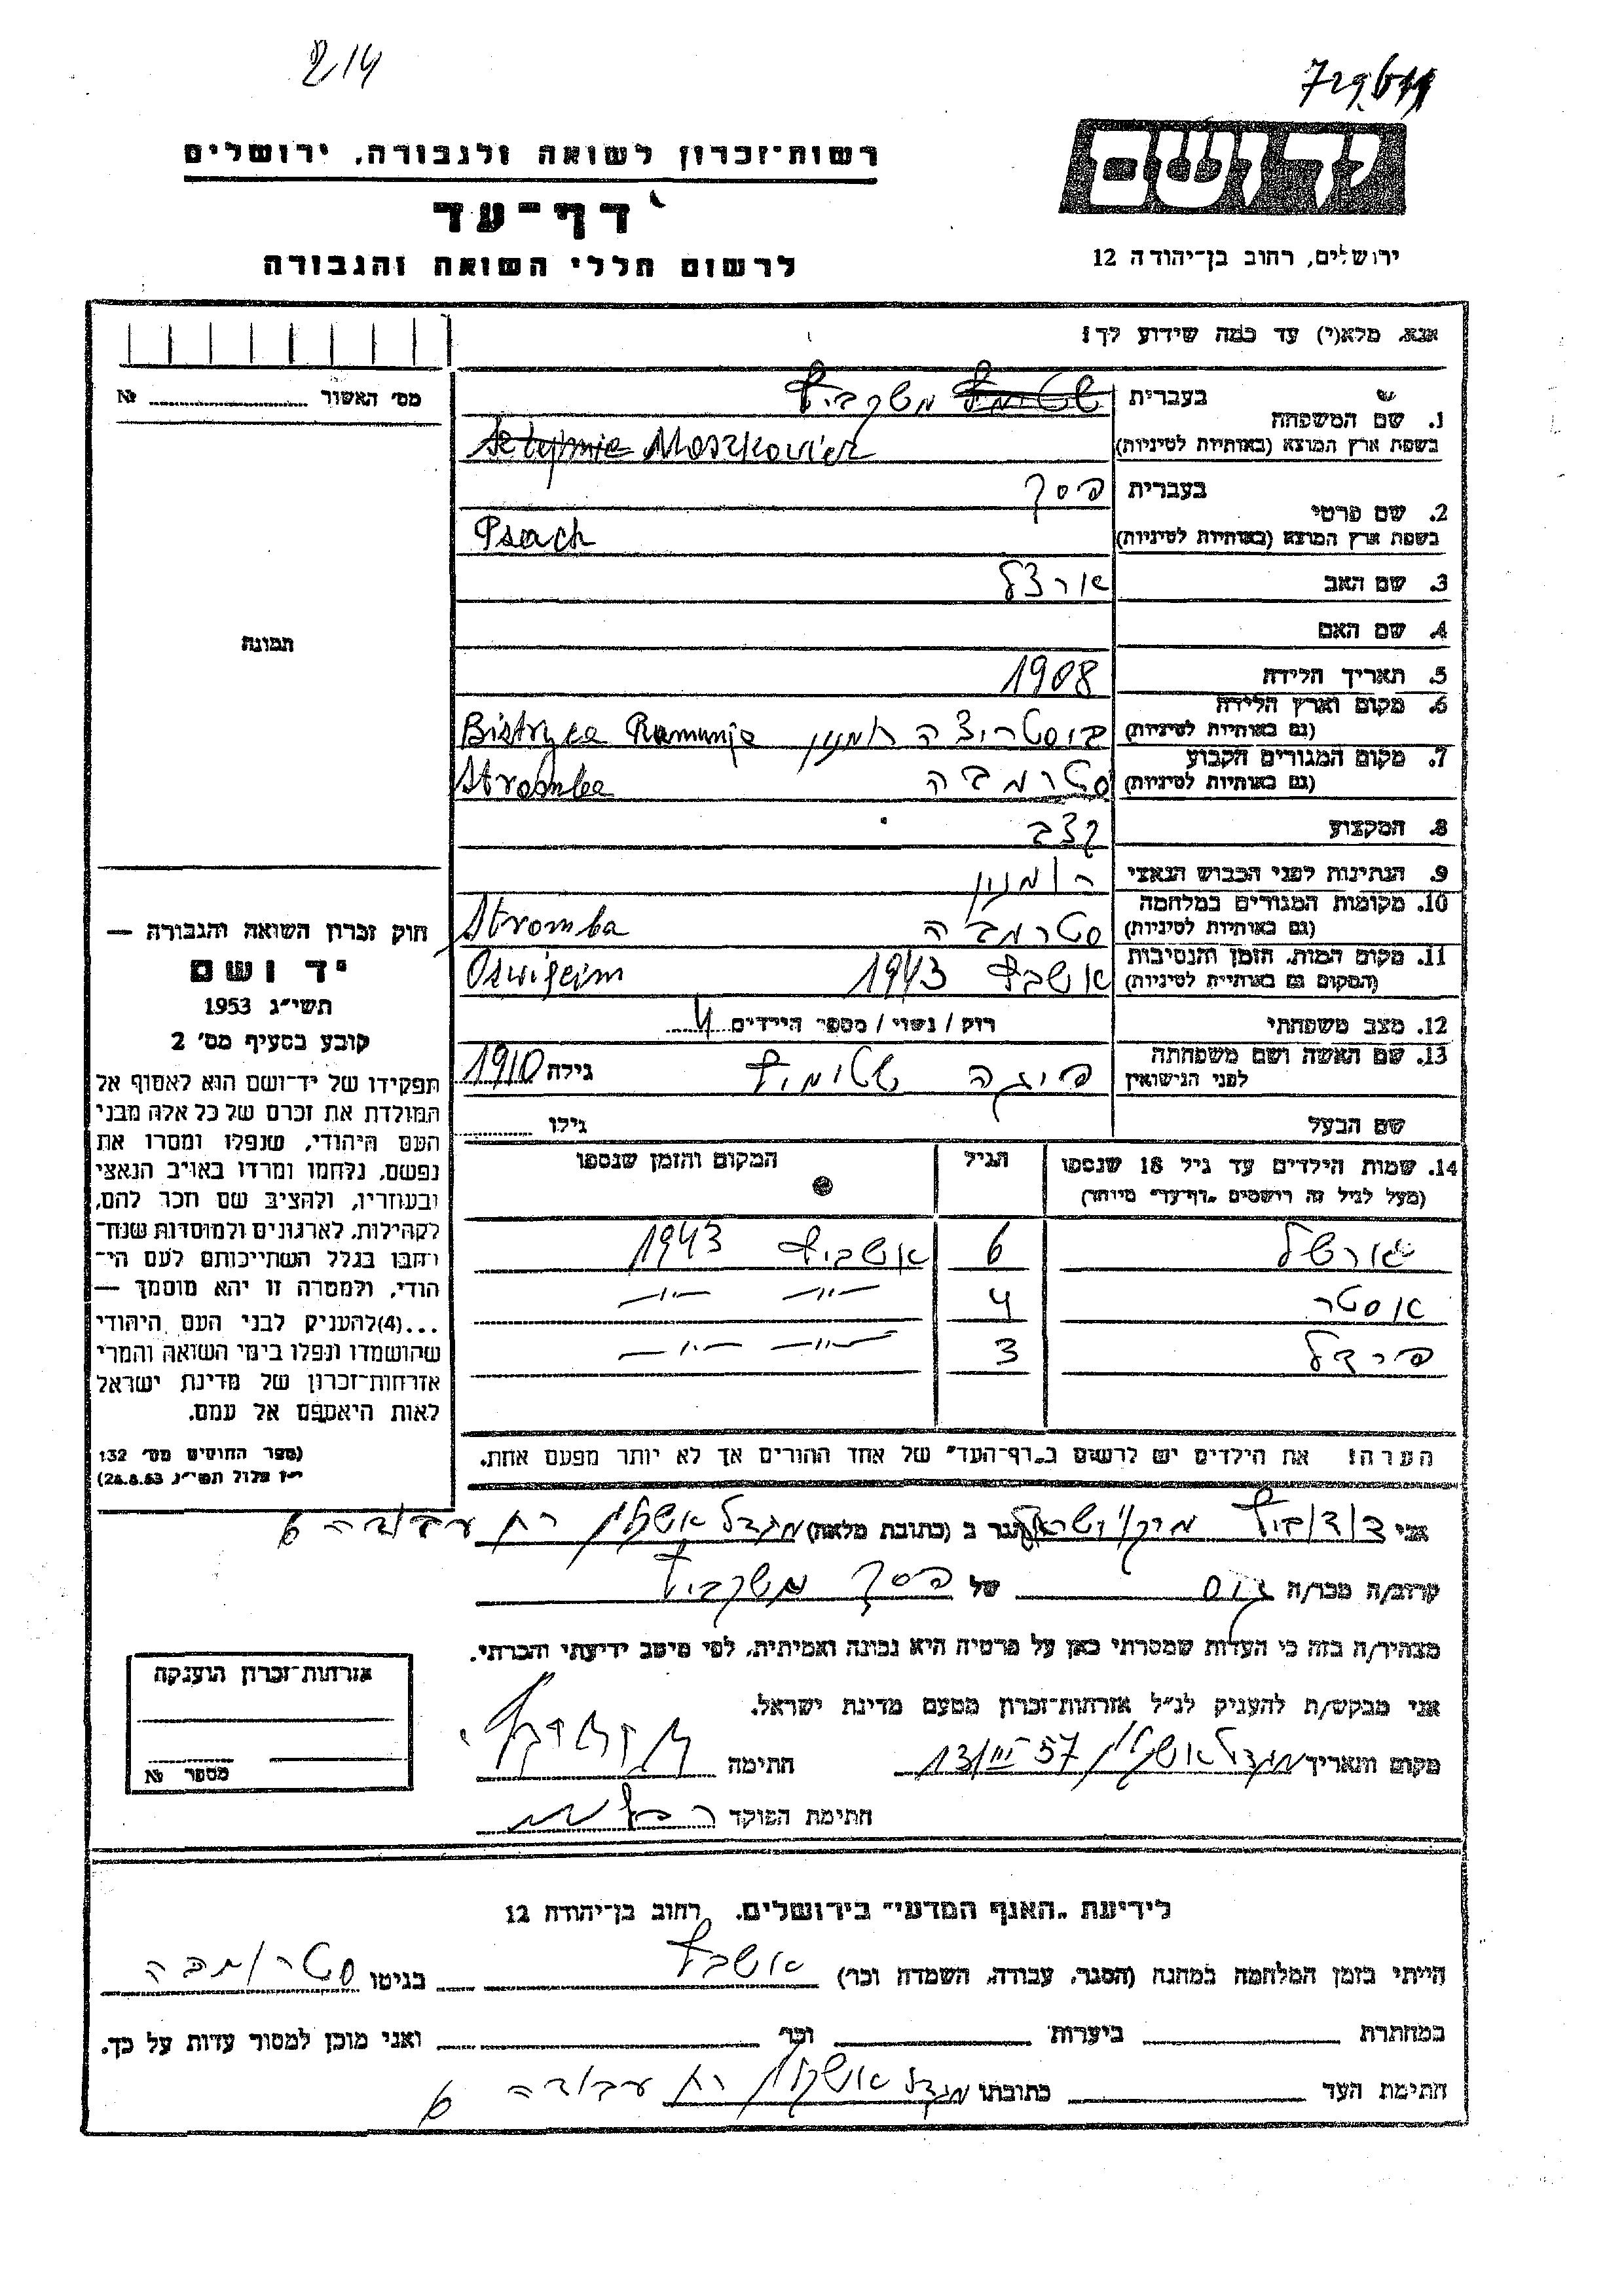 214
רשות־זכרון לשואה ולגבורה, ירושלים
דף־עד
לרשום חללי השואה והגבורה
יד ושם
ירושלים, רחוב בן־יהודה 12
אנא, מלא(י) עד כמה שידוע לך:
מס׳ האשור № 
1. שם המשפחה
בעברית משקביץ
בשפת ארץ המוצא (באותיות לטיניות) Moszkovicz
2. שם פרטי
בעברית פסך
בשפת ארץ המוצא (באותיות לטיניות) Psach
3. שם האב
4. שם האם
5. תאריך הלידה 1908
6. מקום וארץ הלידה
(גם באותיות לטיניות) ביסטריצה Bistryca Rumunja
7. מקום המגורים הקבוע
(גם באותיות לטיניות) סטרמבה Stromba
8. המקצוע קצב
9. הנתינות לפני הכבוש הנאצי
10. מקומות המגורים במלחמה
(גם באותיות לטיניות) סטרמבה Stromba
11. מקום המות, הזמן והנסיבות
(המקום גם באותיות לטיניות) 1943
12. מצב משפחתי רוק / נשוי / מספר הילדים 4
13. שם האשה ושם משפחתה
לפני הנישואין פיגה גילה 1910
שם הבעל גילו
14. שמות הילדים עד גיל 18 שנספו
(מעל לגיל זה רושמים „דף־עד״ מיוחד)
הגיל
המקום והזמן שנספו
6 אושביץ 1943
אסטר 4 —״— —״—
3 —״— —״—
הערה: את הילדים יש לרשום ב„דף־העד״ של אחד ההורים אך לא יותר מפעם אחת.
תמונה
חוק זכרון השואה והגבורה —
יד ושם
תשי״ג 1953
קובע בסעיף מס׳ 2
תפקידו של יד־ושם הוא לאסוף אל
המולדת את זכרם של כל אלה מבני
העם היהודי, שנפלו ומסרו את
נפשם, נלחמו ומרדו באויב הנאצי
ובעוזריו, ולהציב שם וזכר להם,
לקהילות, לארגונים ולמוסדות שנח־
רבו בגלל השתייכותם לעם הי־
הודי, ולמטרה זו יהא מוסמך —
...(4)להעניק לבני העם היהודי
שהושמדו ונפלו בימי השואה והמרי
אזרחות־זכרון של מדינת ישראל
לאות היאספם אל עמם.
(ספר החוקים מס׳ 132
י״ז אלול תשי״ג 28.8.53)
אני דוידוביץ הגר ב (כתובת מלאה) מגדל אשקלון רח עבודה 6
קרוב/ה מכר/ה גיס של פסך משקביץ
מצהיר/ה בזה כי העדות שמסרתי כאן על פרטיה היא נכונה ואמיתית, לפי מיטב ידיעתי והכרתי.
אני מבקש/ת להעניק לנ״ל אזרחות־זכרון מטעם מדינת ישראל.
מקום ותאריך מגדל אשקלון 13/III 57 חתימה
חתימת הפוקד
אזרחות־זכרון הוענקה
מספר №
לידיעת „האגף המדעי״ בירושלים, רחוב בן־יהודה 12
הייתי בזמן המלחמה במחנה (הסגר, עבודה, השמדה וכו׳) אושביץ בגיטו סטרומבה
במחתרת ביערות וכו׳ ואני מוכן למסור עדות על כך.
חתימת העד כתובתו מגדל אשקלון רח עבודה 6